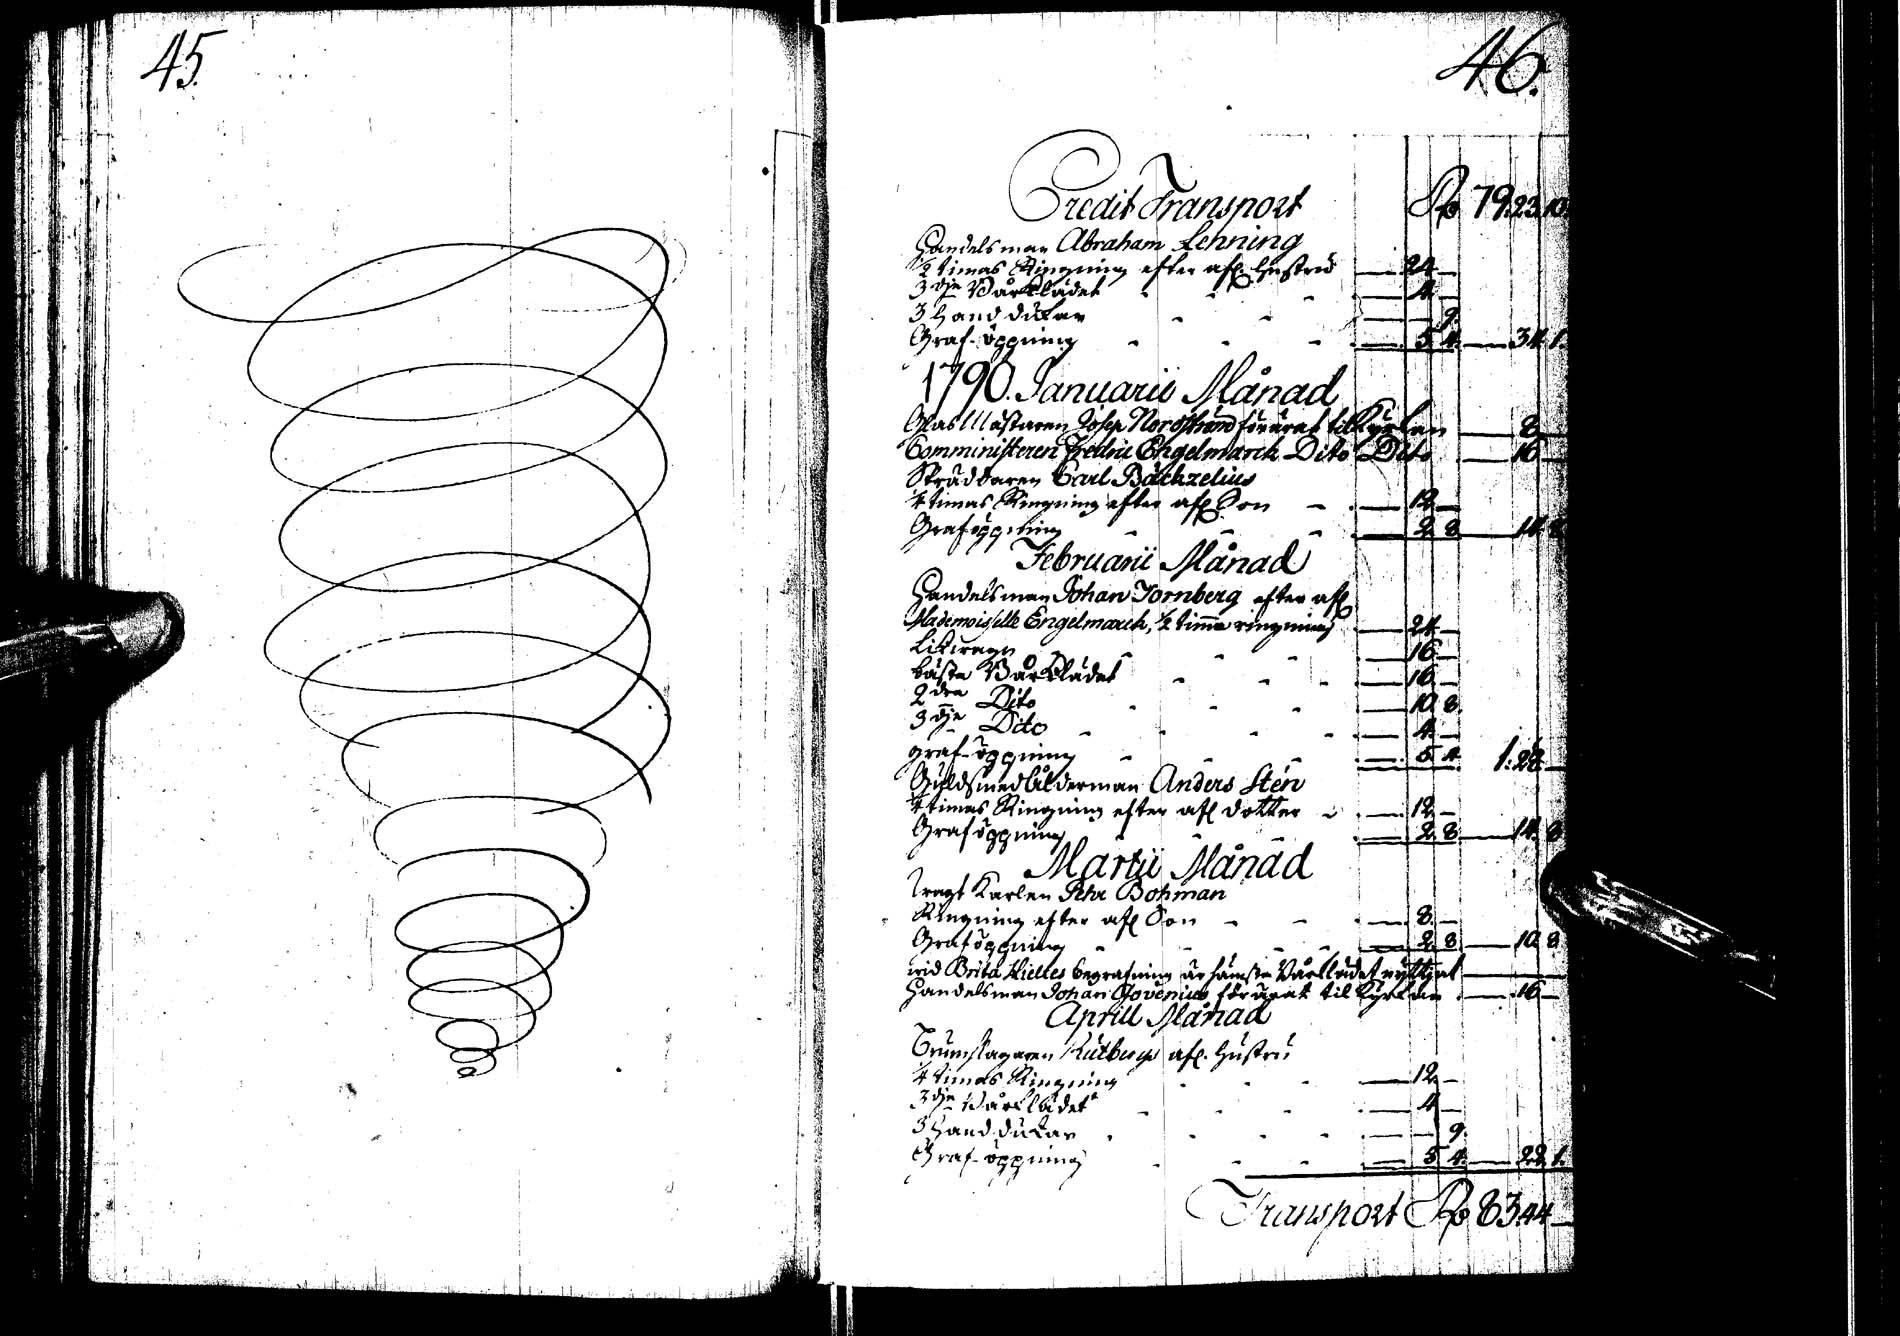 45.
46.
Credit Transport Rd 79.23.10.
Handelsman Abraham Lenning
½ timas Ringning efter afl. Hustru 24
3dje Bårklädet 4
3 Handdukar 9.
Graf-öppning 5 4. 34 1.
1790. Januarii Månad
Glas Mästaren Josep Nordstrand förärat til Kyrkan 8
Comministeren Fredric Engelmarck Dito Dito 16
Carl Bächzelius
¼ timas Ringning efter afl. Son 12
Graföppning 2 8 14 8
Februarii Månad
Handelsman Johan Tornberg efter afl
Mademoiselle Engelmarck, ½ timma ringning 24
Likvagn 16
bästa Bårklädet 16
2dra Dito 10 8.
3dje Dito 4
graf-öppning 5 4 1:28
Guldsmed Ålderman Anders Stén
¼ timas Ringning efter afl dotter 12
Graföppning 2 8 14 8
Martii Månad
Karlen Pehr Bohman
Ringning efter afl Son 8
Graföppning 2 8 10 8
vid Brita begrafning är sämsta Bårklädet nyttjat
Handelsman Johan förärat til Kyrkan 16
Aprill Månad
Trumslagaren afl. Hustru
¼ timas Ringning 12
3dje Bårklädet 4
3 Handdukar 9.
Graf-öppning 5 4. 22 1.
Transport Rd 83.44